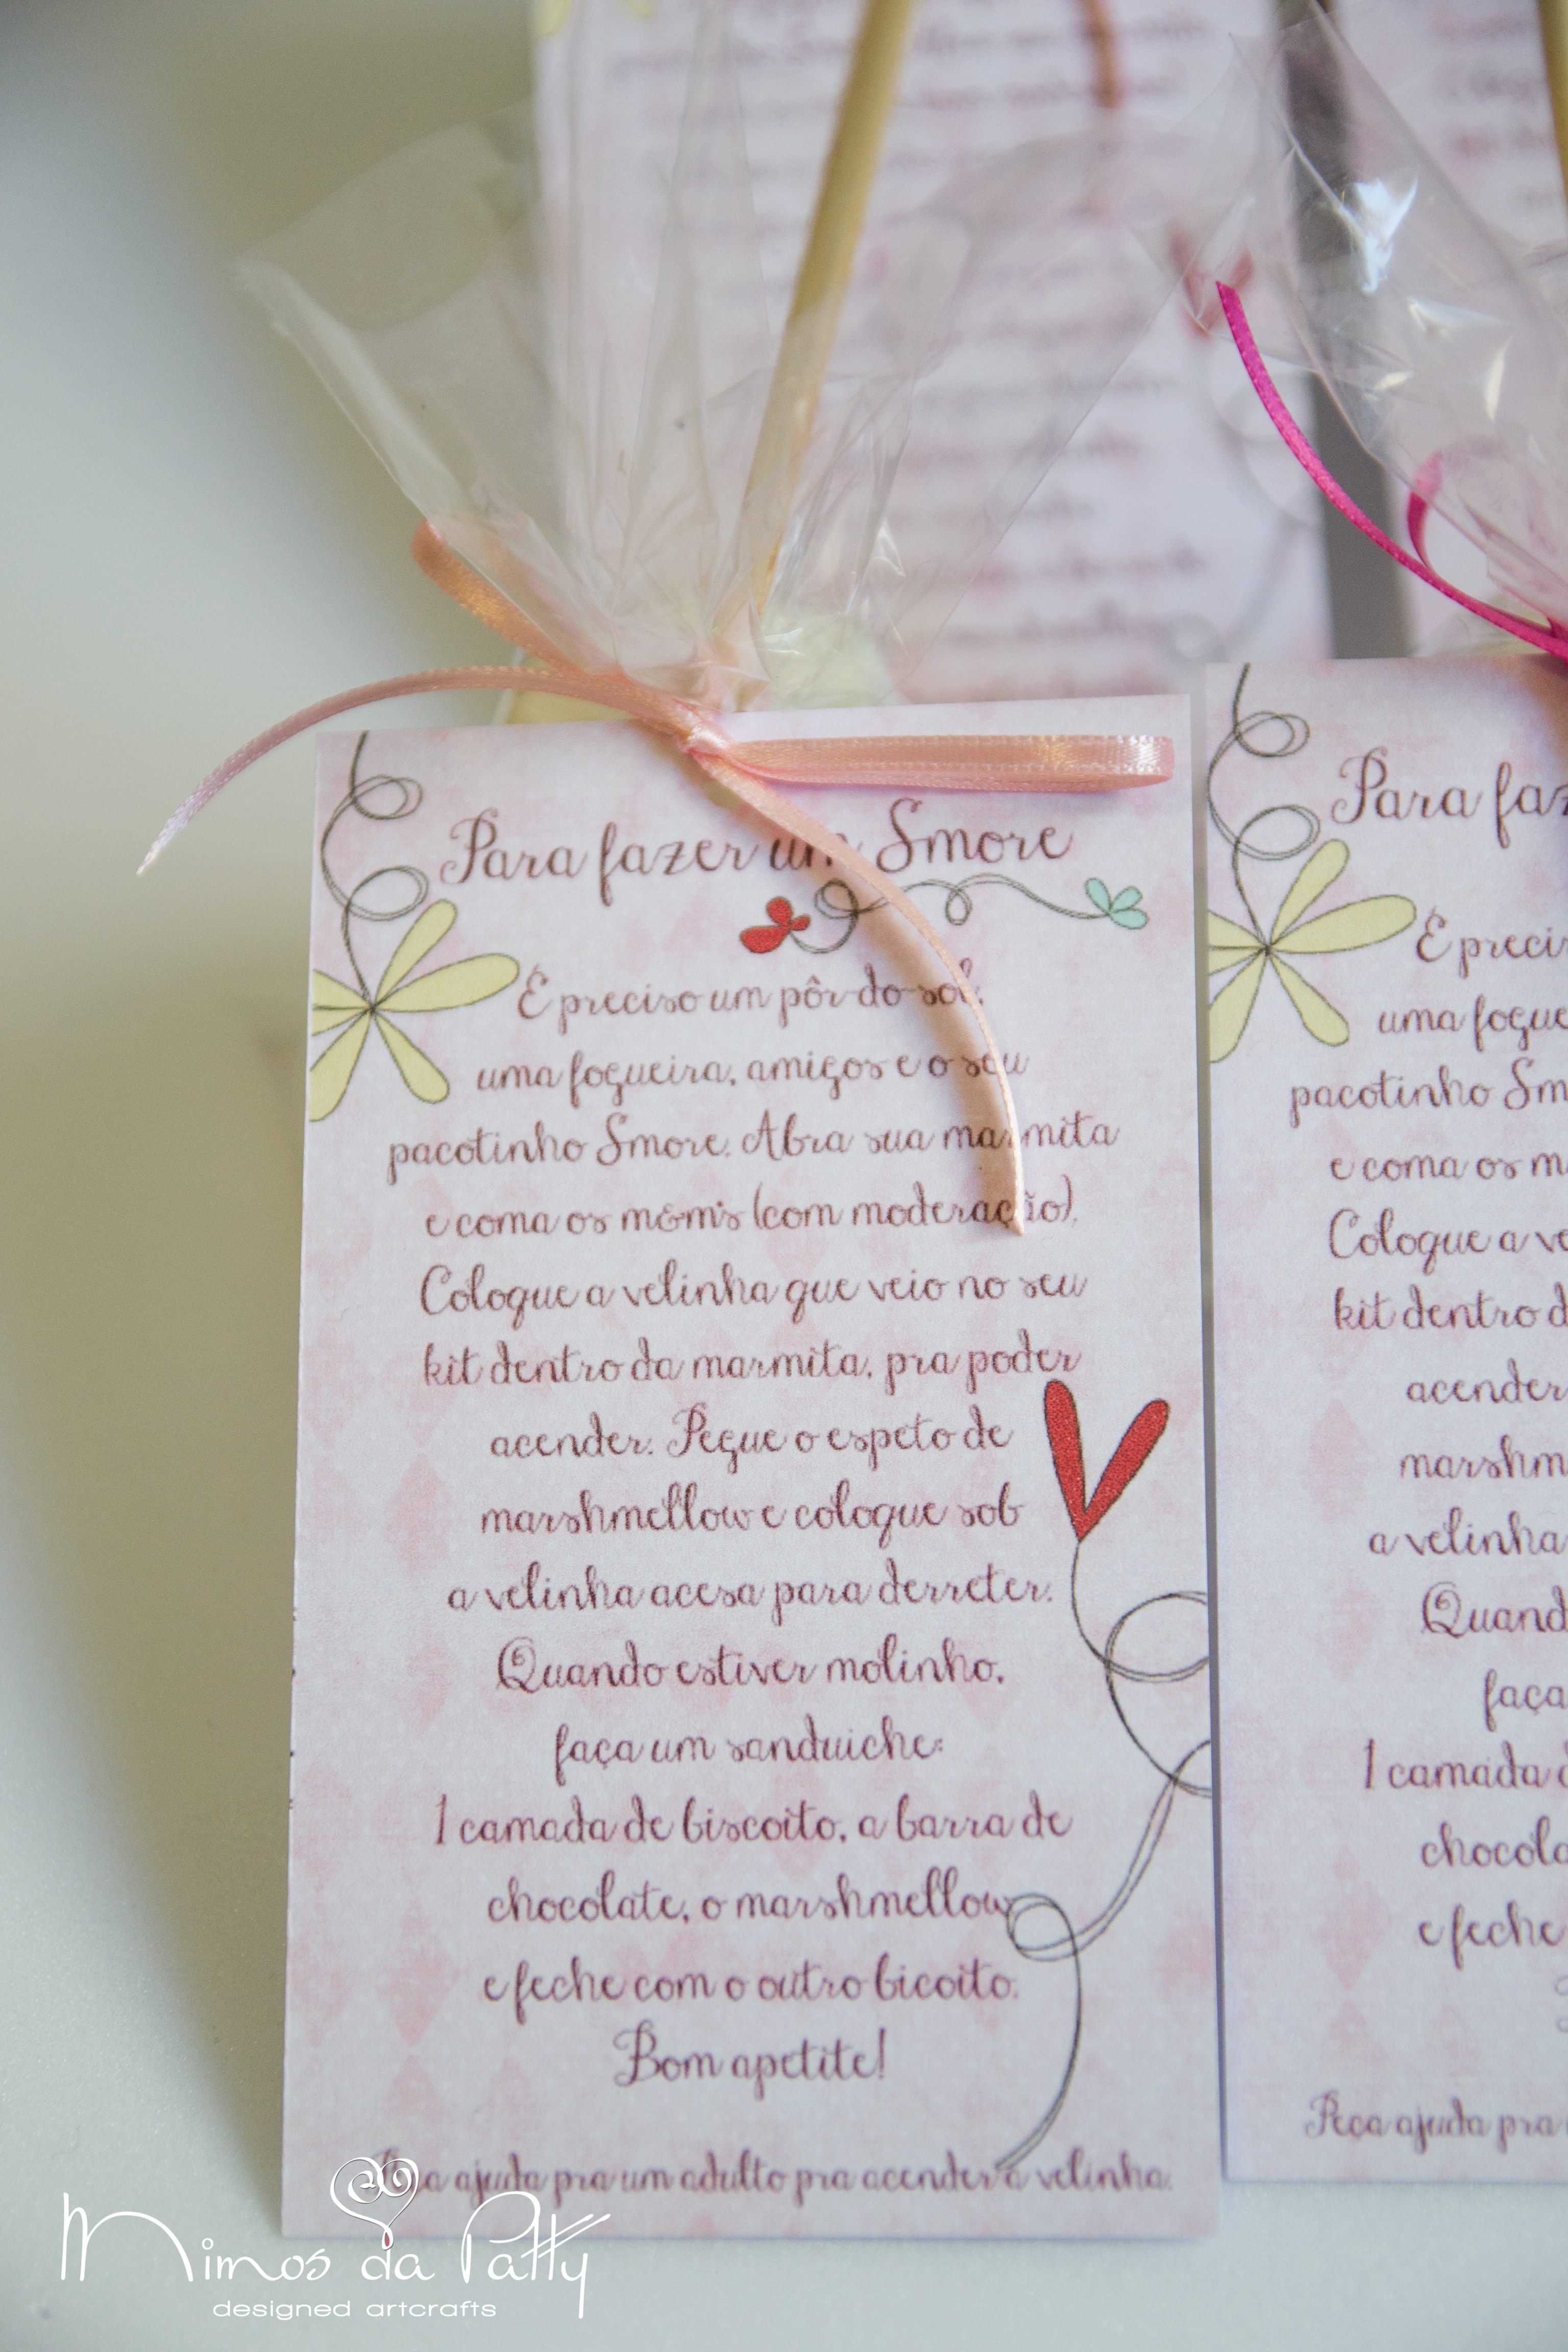 Para fazer um Smore
É preciso um pôr-do-sol,
uma fogueira, amigos e o seu
pacotinho Smore. Abra sua marmita
e coma os m&m's (com moderação).
Coloque a velinha que veio no seu
kit dentro da marmita, pra poder
acender. Pegue o espeto de
marshmellow e coloque sob
a velinha acesa para derreter.
Quando estiver molinho,
faça um sanduiche:
1 camada de biscoito, a barra de
chocolate, o marshmellow
e feche com o outro bicoito.
Bom apetite!
Peça ajuda pra um adulto pra acender a velinha.
Para
É
uma
pacotinho
e coma os
Coloque a
kit dentro
acender
a velinha
1 camada
e feche
Peça ajuda pra
Mimos da Patty
designed artcrafts